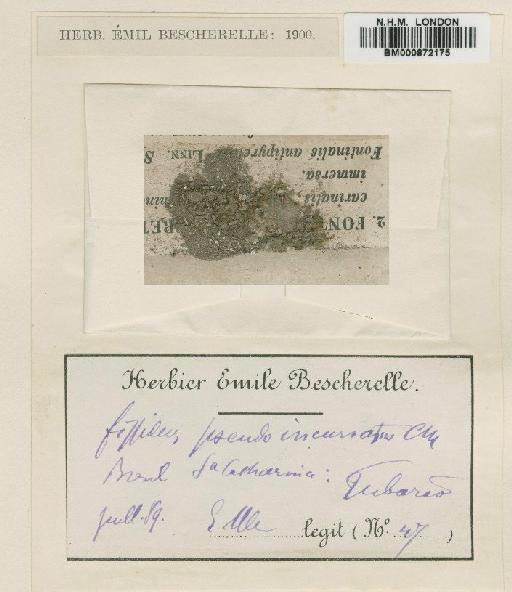 HERB. ÉMIL BESCHERELLE: 1900.
N.H.M. LONDON
BM000872175
Fontinalis antipyre LINN. S
immersa.
carinalis
2. FON RET
Herbier Emile Bescherelle.
fissidens pseudo incurvatus CM
Bresil Sta Catharina: Tubarão
juill. 89. E Ule legit (No. 47)